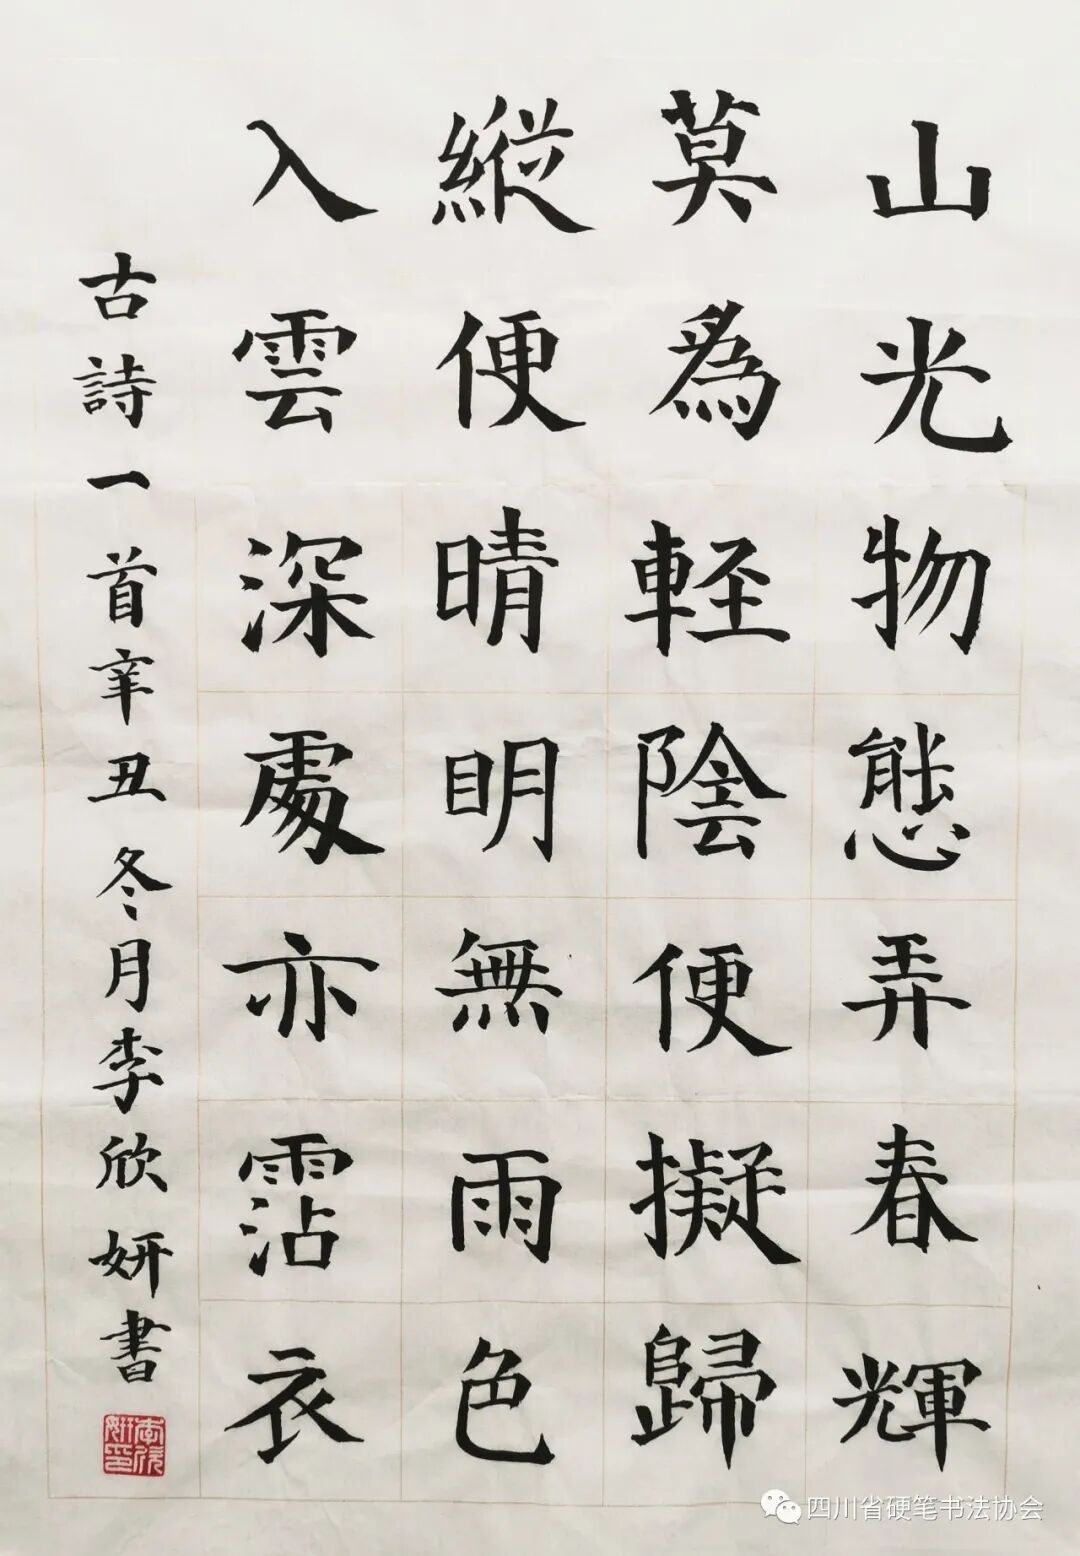 山光物態弄春輝
莫為輕陰便擬歸
縱便晴明無雨色
入雲深處亦霑衣
古詩一首辛丑冬月李欣妍書
李欣妍印
四川省硬笔书法协会